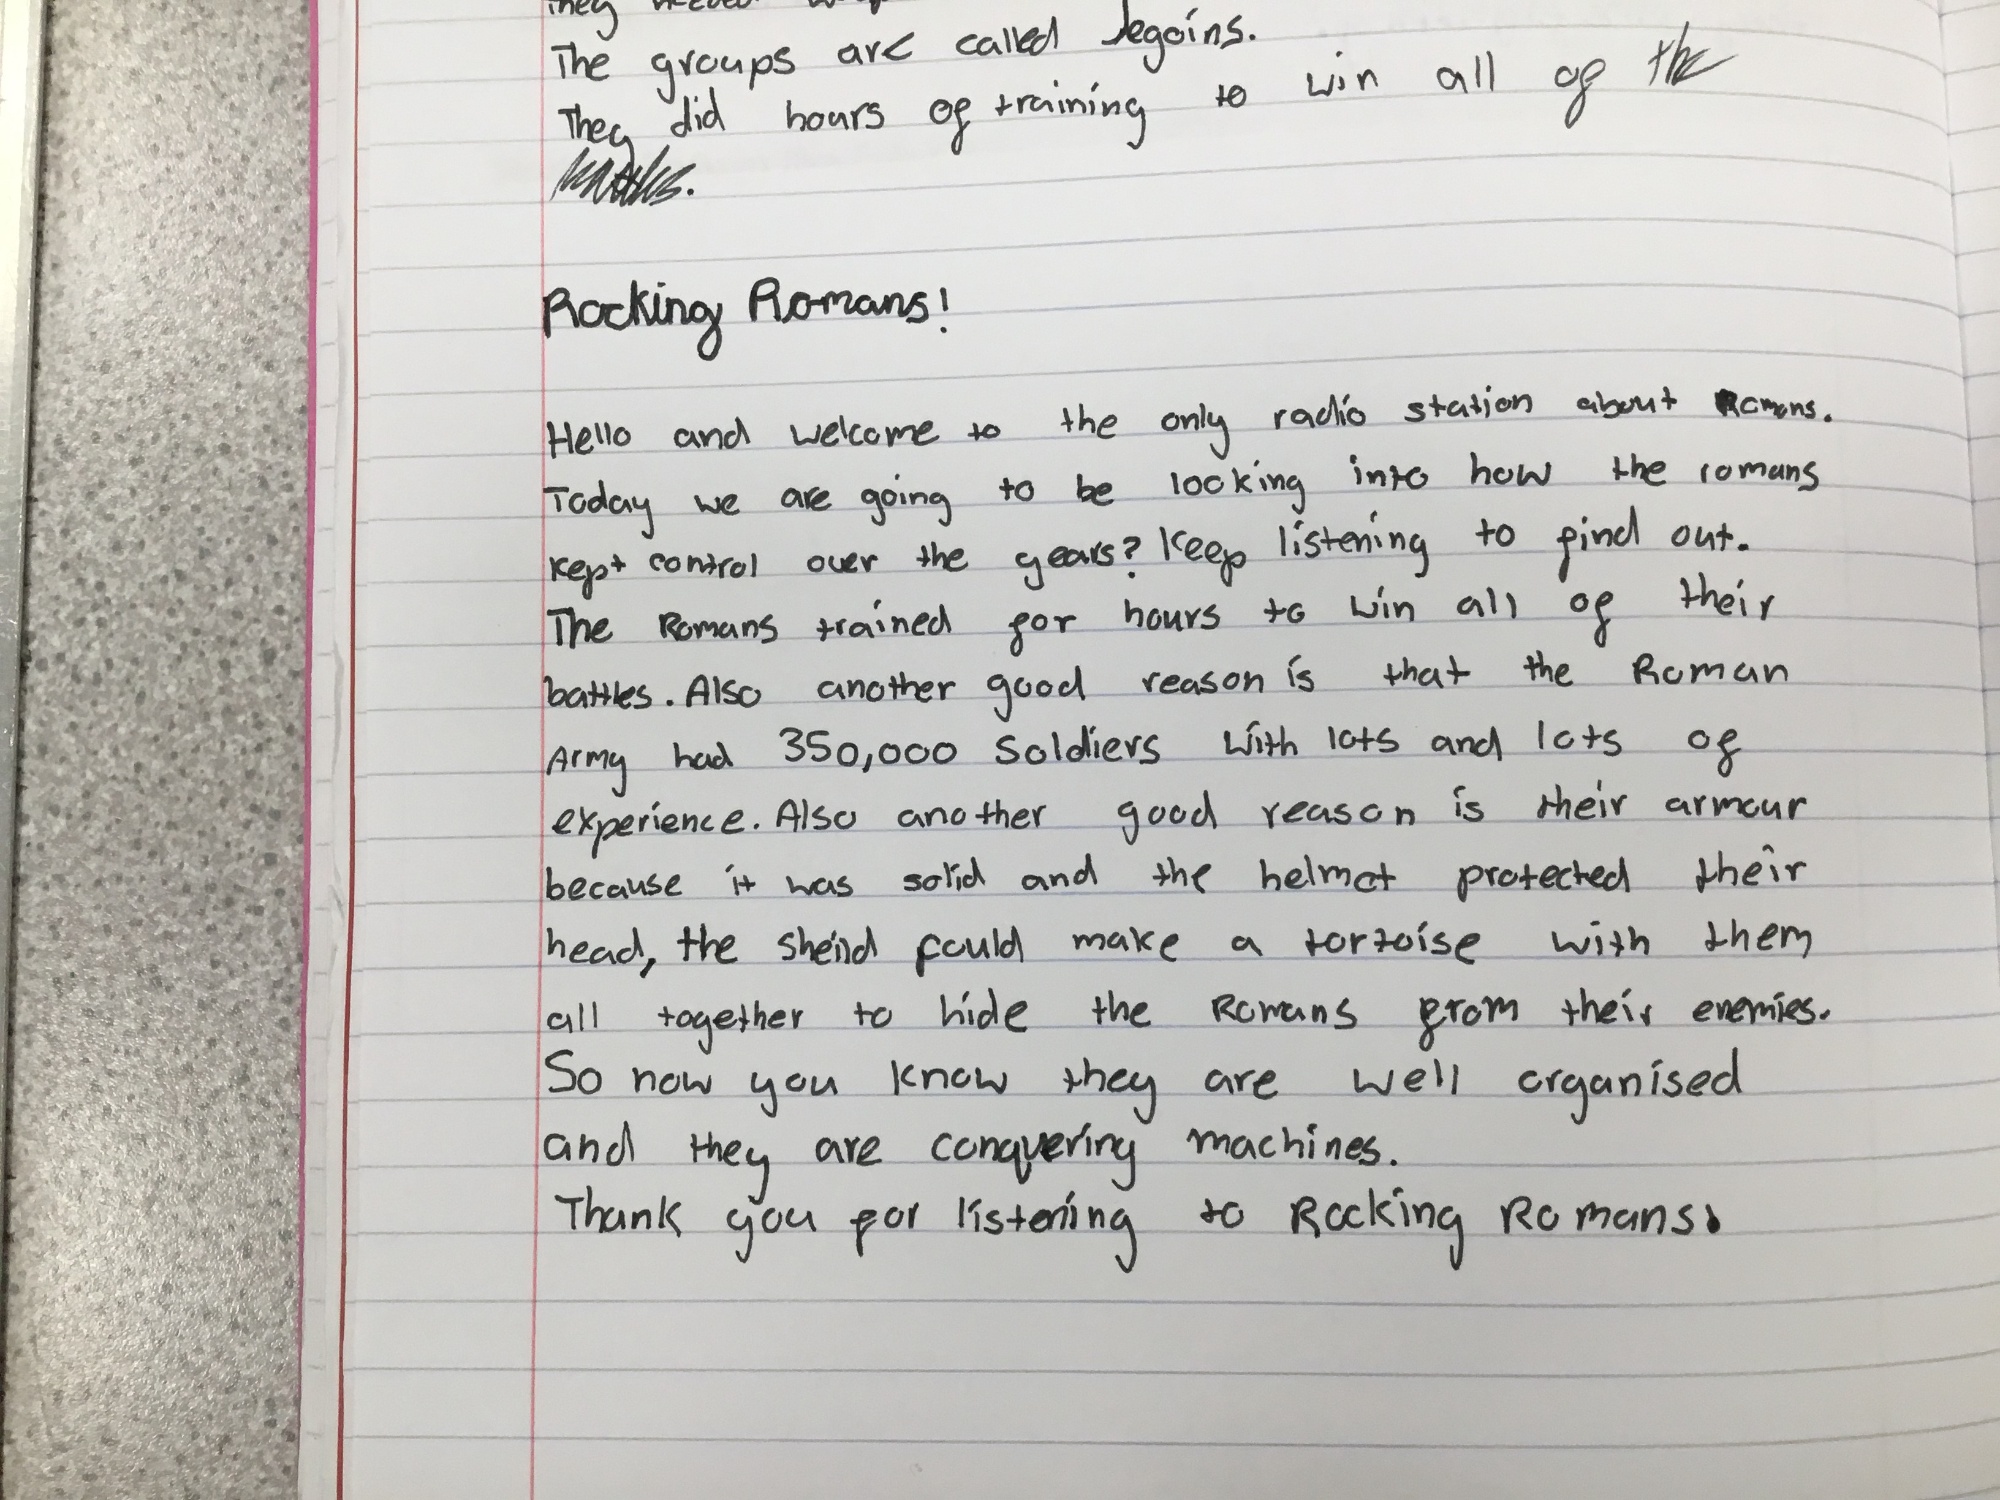 They needed
The groups are called legoins.
They did hours of training to win all of the
Rocking Romans!
Hello and welcome to the only radio station about Romans.
Today we are going to be looking into how the romans
kept control over the years? Keep listening to find out.
The Romans trained for hours to win all of their
battles. Also another good reason is that the Roman
Army had 350,000 Soldiers with lots and lots of
experience. Also another good reason is their armour
because it was solid and the helmet protected their
head, the sheild could make a tortoise with them
all together to hide the Romans from their enemies.
So now you know they are well organised
and they are conquering machines.
Thank you for listening to Rocking Romans!